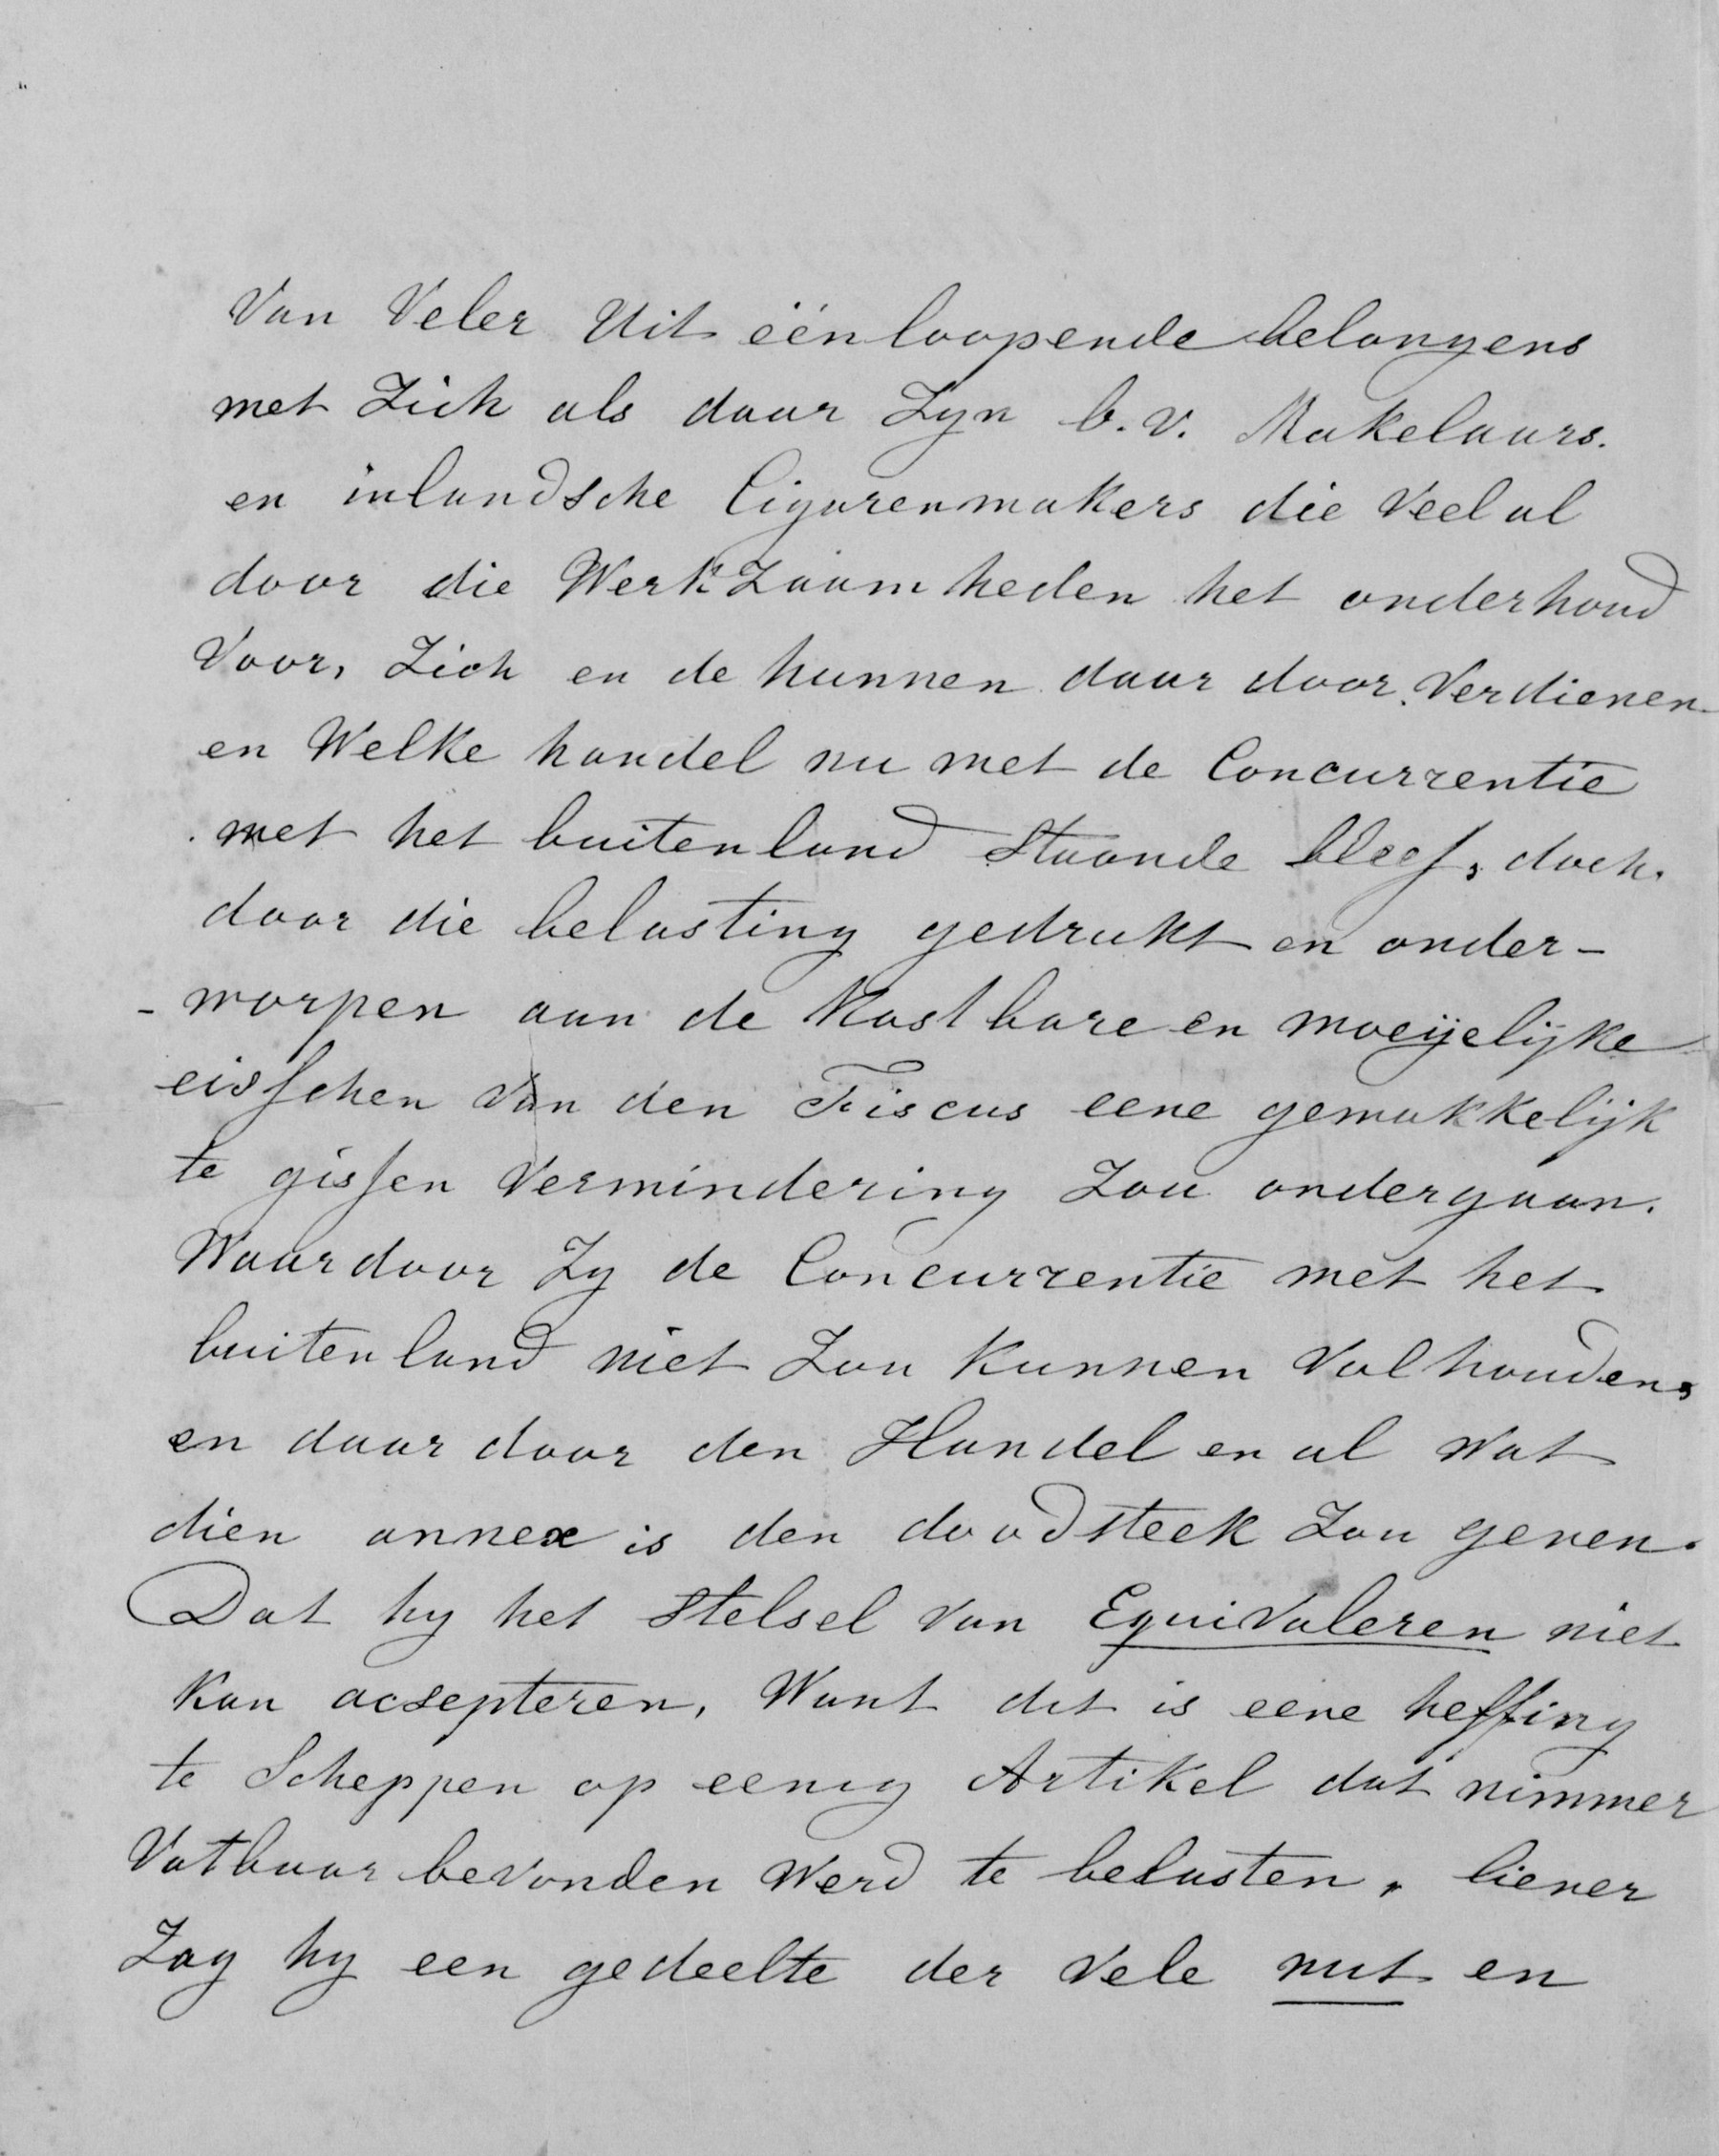 Van Veler Uit éénloopende belangens
met Zich als daar Zyn b.v. Makelaars.
en inlandsche Cigarenmakers die Veelal
door die WerkZaamheden het onderhoud
Voor, Zich en de hunnen daar door Verdienen
en Welke handel nu met de Concurrentie
met het buitenland Staande bleef, doch.
door die belasting gedrukt en onder-
-worpen aan de Kostbare en moeijelijke
eisschen Van den Fiscus eene gemakkelijk
te gissen Vermindering Zou ondergaan.
Waardoor Zy de Concurrentie met het
buitenland niet Zou Kunnen Volhouden,
en daar door den Handel en al Wat
dien annex is den doodsteek Zou geven.
Dat hy het Stelsel Van EquiValeren niet
Kan acsepteren, Want dit is eene heffing
te Scheppen op eenig Artikel dat nimmer
Vatbaar beVonden Werd te belasten, liever
Zag hy een gedeelte der Vele nut en